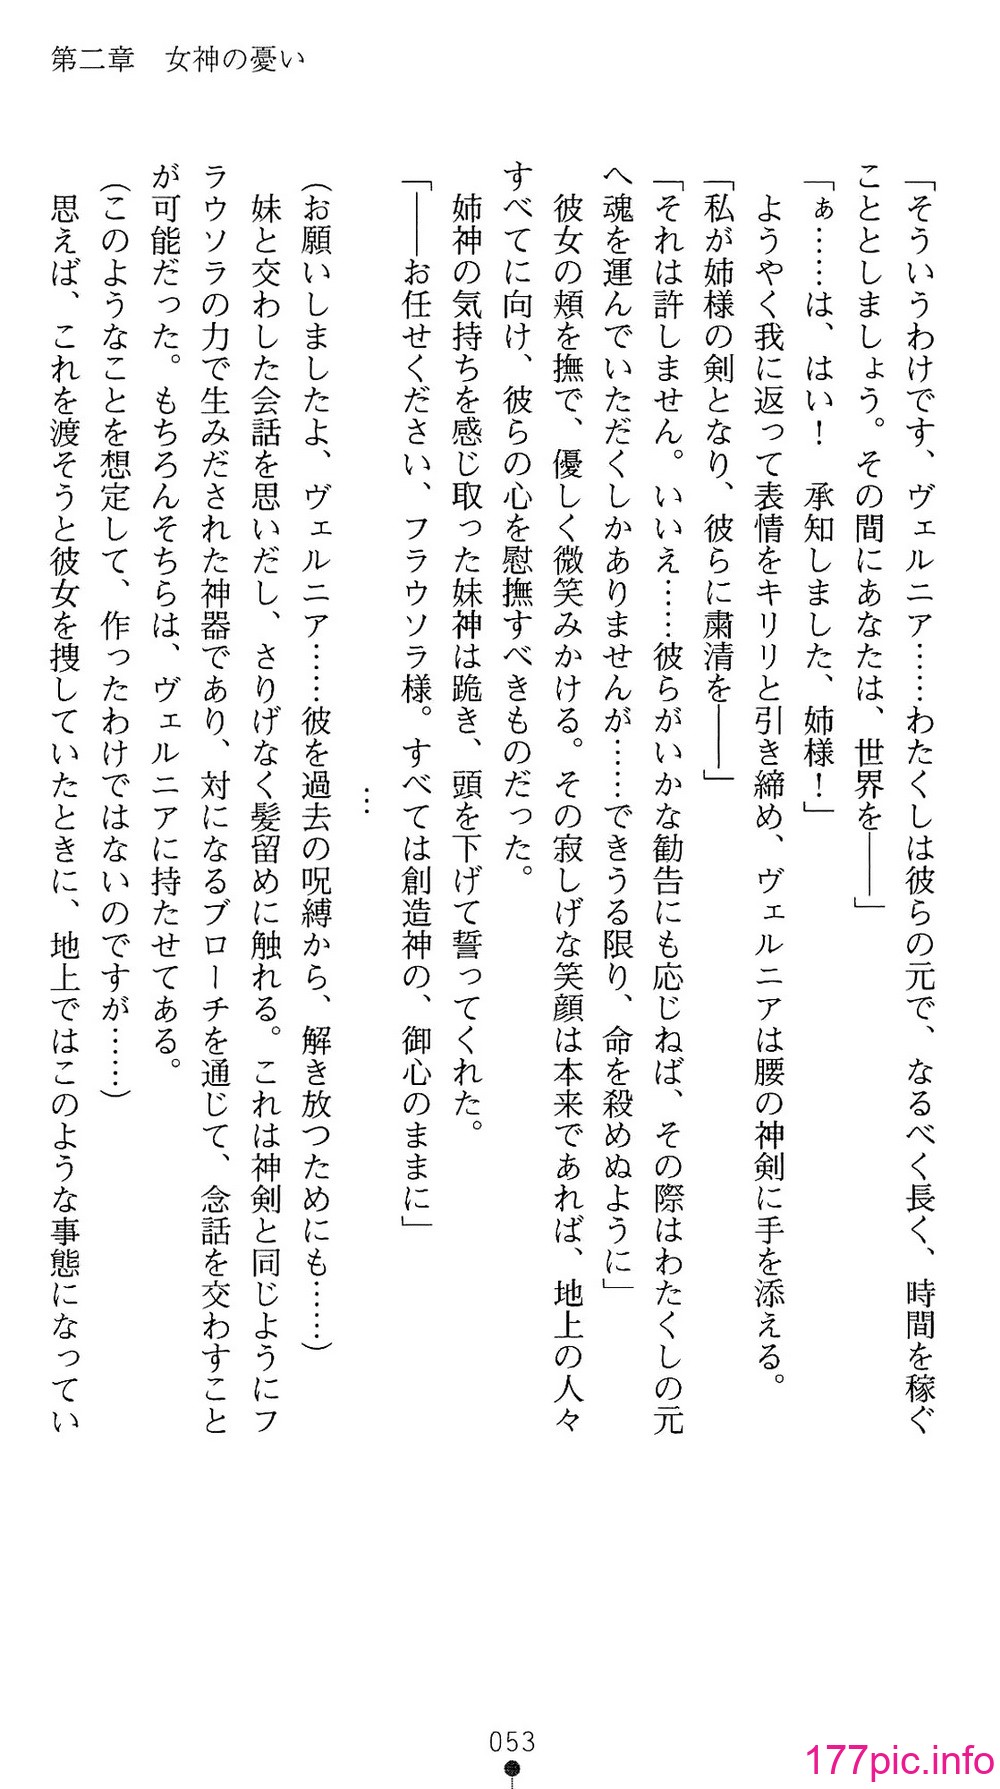 第二章　女神の憂い
「そういうわけです、ヴェルニア……わたくしは彼らの元で、なるべく長く、時間を稼ぐ
こととしましょう。その間にあなたは、世界を――」
「ぁ……は、はい！　承知しました、姉様！」
　ようやく我に返って表情をキリリと引き締め、ヴェルニアは腰の神剣に手を添える。
「私が姉様の剣となり、彼らに粛清を――」
「それは許しません。いいえ……彼らがいかな勧告にも応じねば、その際はわたくしの元
へ魂を運んでいただくしかありませんが……できうる限り、命を殺めぬように」
　彼女の頬を撫で、優しく微笑みかける。その寂しげな笑顔は本来であれば、地上の人々
すべてに向け、彼らの心を慰撫すべきものだった。
　姉神の気持ちを感じ取った妹神は跪き、頭を下げて誓ってくれた。
「――お任せください、フラウソラ様。すべては創造神の、御心のままに」
…
（お願いしましたよ、ヴェルニア……彼を過去の呪縛から、解き放つためにも……）
　妹と交わした会話を思いだし、さりげなく髪留めに触れる。これは神剣と同じようにフ
ラウソラの力で生みだされた神器であり、対になるブローチを通じて、念話を交わすこと
が可能だった。もちろんそちらは、ヴェルニアに持たせてある。
（このようなことを想定して、作ったわけではないのですが……）
　思えば、これを渡そうと彼女を捜していたときに、地上ではこのような事態になってい
053
177pic.info